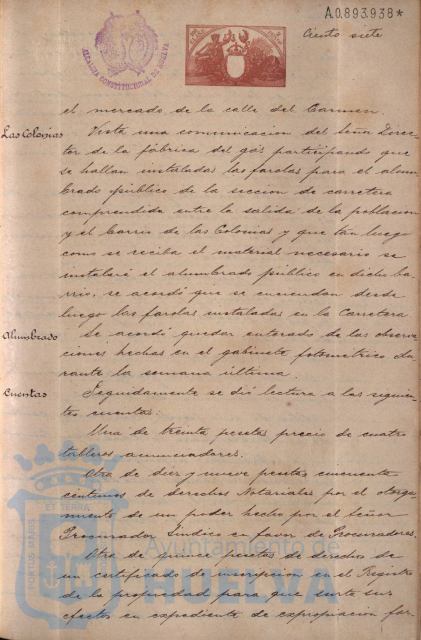 A.0.893.938*
Ciento siete
ALCALDIA CONSTITUCIONAL DE HUELVA
el mercado de la calle del Carmen.
Las Colonias
Vista una comunicacion del Señor Direc-
tor de la fábrica del gas participando que
se hallan instaladas las farolas para el alum
brado público de la seccion de carretera
comprendida entre la salida de la poblacion
y el Barrio de las Colonias y que tan luego
como se reciba el material necesario se
instalará el alumbrado público en dicho ba
rrio, se acordó que se enciendan desde
luego las farolas instaladas en la Carretera
Alumbrado
Se acordó quedar enterado de las observa
ciones hechas en el gabinete fotometrico du
rante la semana última.
Cuentas
Seguidamente se dió lectura a las siguien-
tes cuentas:
Una de treinta pesetas precio de cuatro
tableros anunciadores.
Otra de diez y nueve pesetas cincuenta
centimos de derechos Notariales por el otorga-
miento de un poder hecho por el Señor
Procurador Sindico en favor de Procuradores.
Otra de quince pesetas de derechos de
un certificado de inscripcion en el Registro
de la propiedad para que surta sus
efectos en expediente de expropiacion for-
PORTUS MARIS ET TERRÆ
Ayuntamiento de
HUELVA